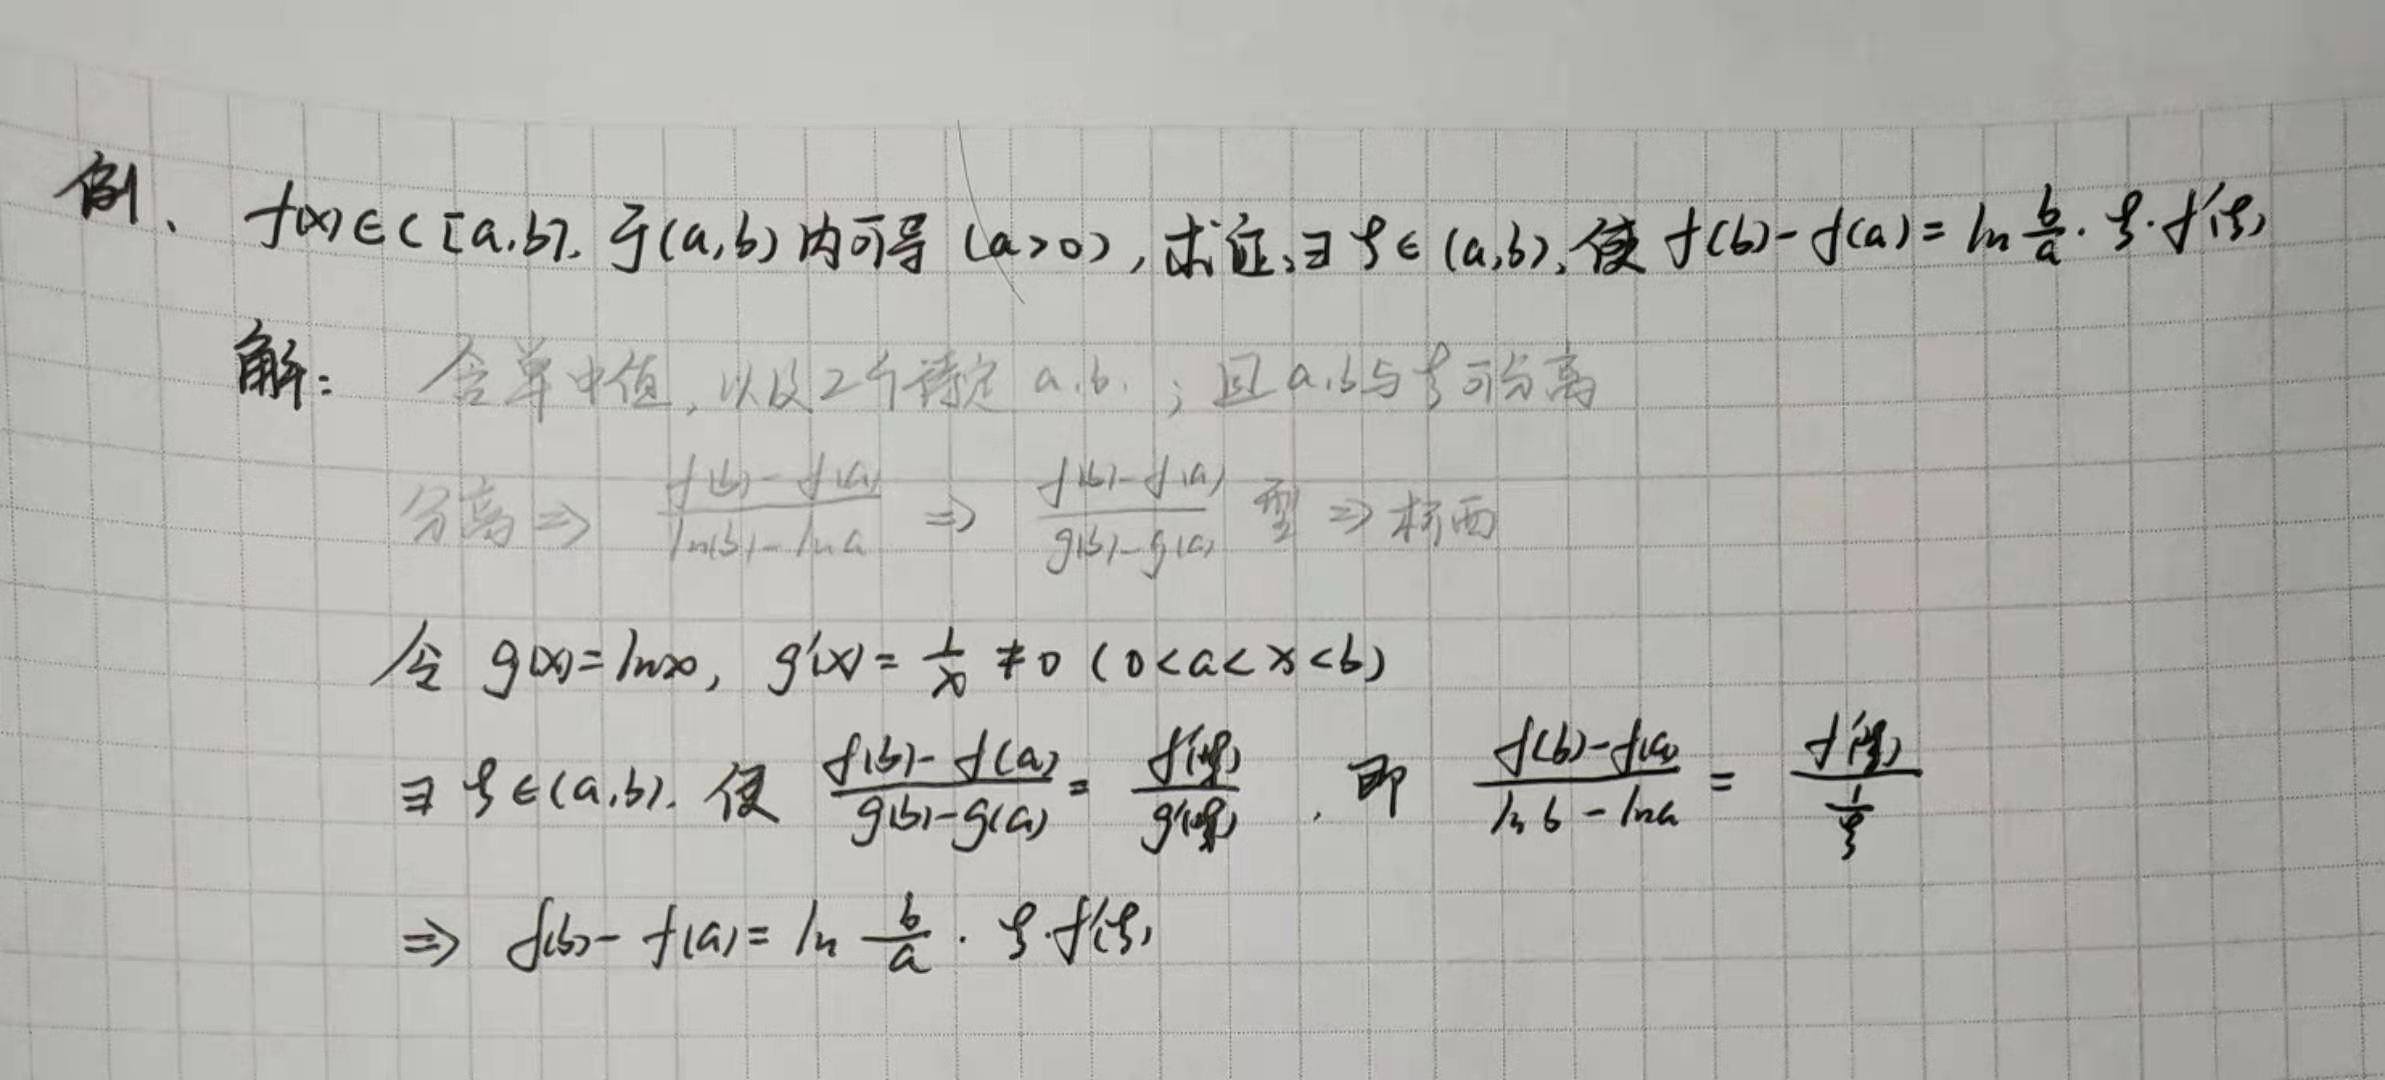 例、 f(x)∈C[a,b],于(a,b)内可导(a>0),求证:∃ξ∈(a,b),使 f(b)-f(a)=ln b/a·ξ·f'(ξ)
解: 含单中值,以及2个待定a.b.;且a.b与ξ可分离
分离⇒ (f(b)-f(a))/(ln(b)-lna) ⇒ (f(b)-f(a))/(g(b)-g(a)) 型⇒柯西
令 g(x)=lnx, g'(x)=1/x≠0(0<a<x<b)
∃ξ∈(a,b).使 (f(b)-f(a))/(g(b)-g(a))=f'(ξ)/g'(ξ),即 (f(b)-f(a))/(lnb-lna)=f'(ξ)/(1/ξ)
⇒ f(b)-f(a)=ln b/a·ξ·f'(ξ)